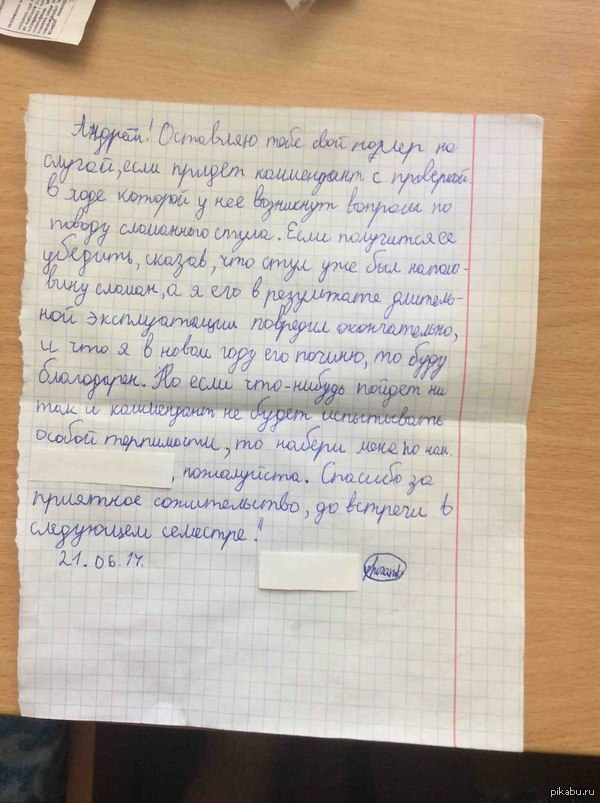 Андрей! Оставляю тебе свой номер на
случай, если придет коммендант с проверкой
в ходе которой у неё возникнут вопросы по
поводу сломанного стула. Если получится ее
убедить, сказав, что стул уже был наполо-
вину сломан, а я его в результате длитель-
ной эксплуатации повредил окончательно,
и что я в новом году его починю, то буду
благодарен. Но если что-нибудь пойдет не
так и коммендант не будет испытывать
особой терпимости, то набери меня по ном.
, пожалуйста. Спасибо за
приятное сожительство, до встречи в
следующем семестре!
21.06.17.
pikabu.ru